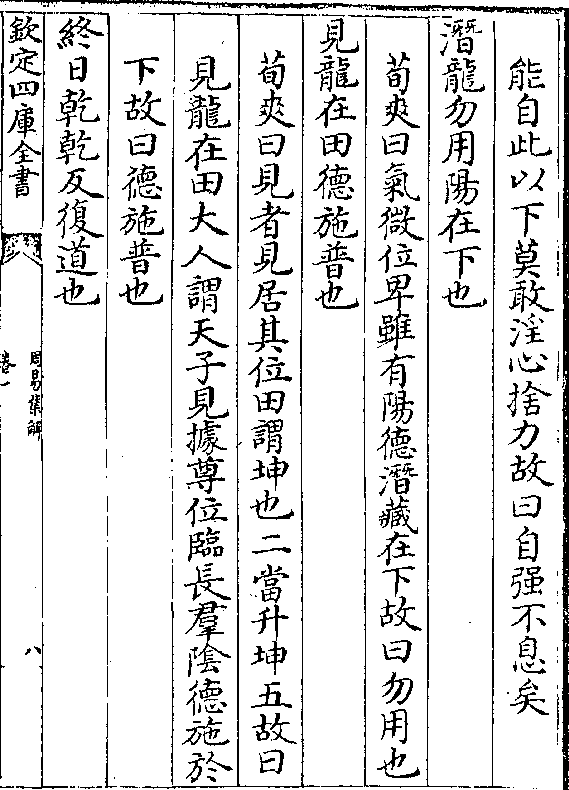 能自此以下莫敢淫心捨力故曰自强不息矣
潛龍勿用陽在下也
荀爽曰氣微位卑雖有陽德潛藏在下故曰勿用也
見龍在田德施普也
荀爽曰見者見居其位田謂坤也二當升坤五故曰
見龍在田大人謂天子見據尊位臨長羣陰德施於
下故曰德施普也
終日乾乾反復道也
欽定四庫全書
周易集解
卷一
八